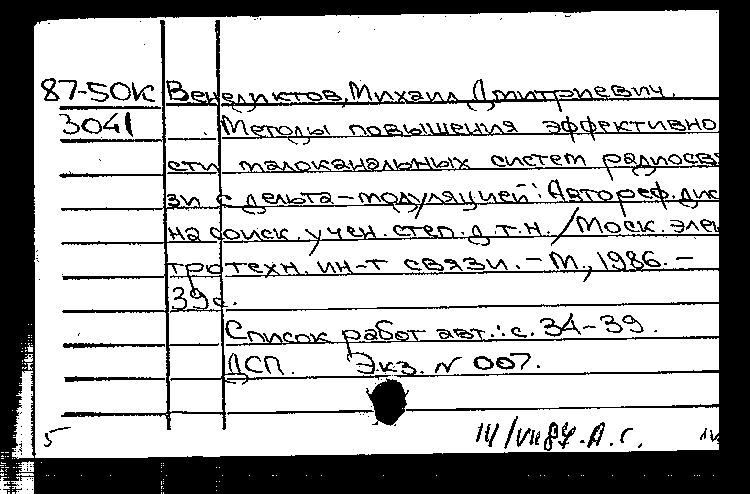 87-50К Венедиктов, Михаил Дмитриевич.
3041 Методы повышения эффективно
сти малоканальных систем радиосвя
зи с дельта-модуляцией: Автореф. дис
на соиск. учен. степ. д.т.н. / Моск. элек
тротехн. ин-т связи. - М., 1986. -
39 с.
Список работ авт.: с. 34-39.
ДСП. Экз. N 007.
5 А.С.